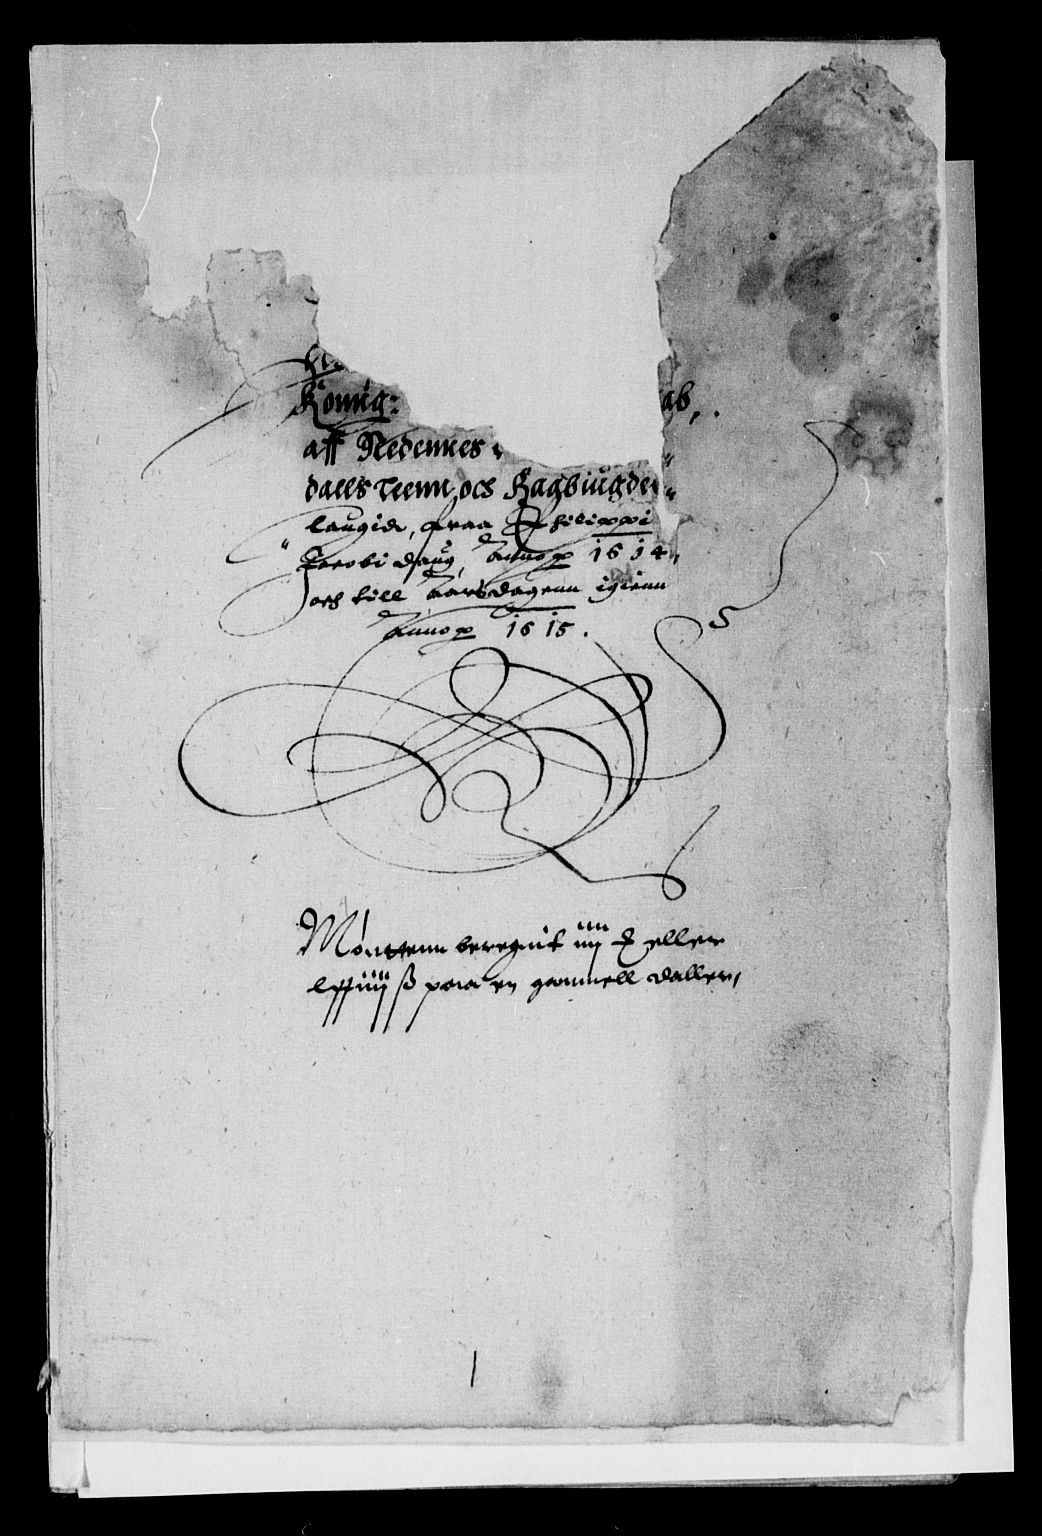 Konnig: ab,
aff Nedennes
dalls Leenn, och Ragbiugde
laugid, fraa Philippi
Jacobi daug, Anno 1614,
och till Aarsdagenn igienn
Anno 1615.
Møntenn beregnit iiij eller
lxiiiij ß paa en gammell daller,
1